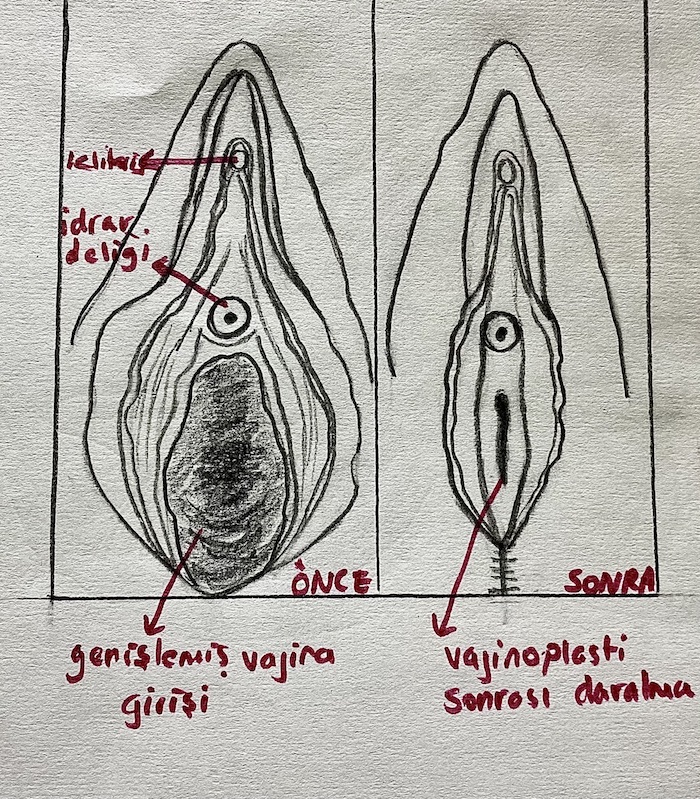 klitoris
idrar
deliği
ÖNCE
SONRA
genişlemiş vajina
girişi
vajinoplasti
sonrası daralma